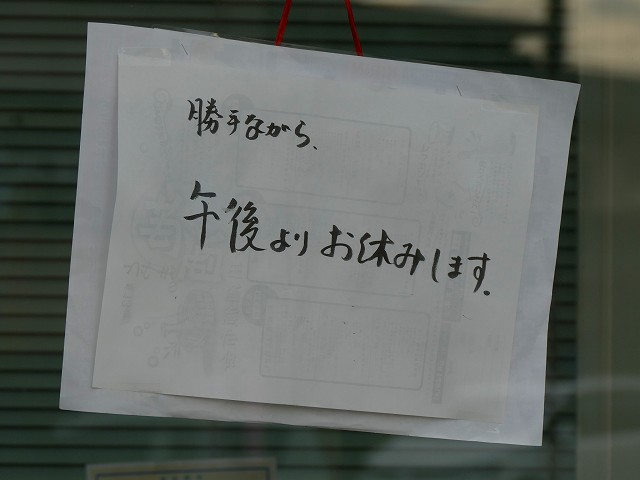 勝手ながら、
午後よりお休みします.